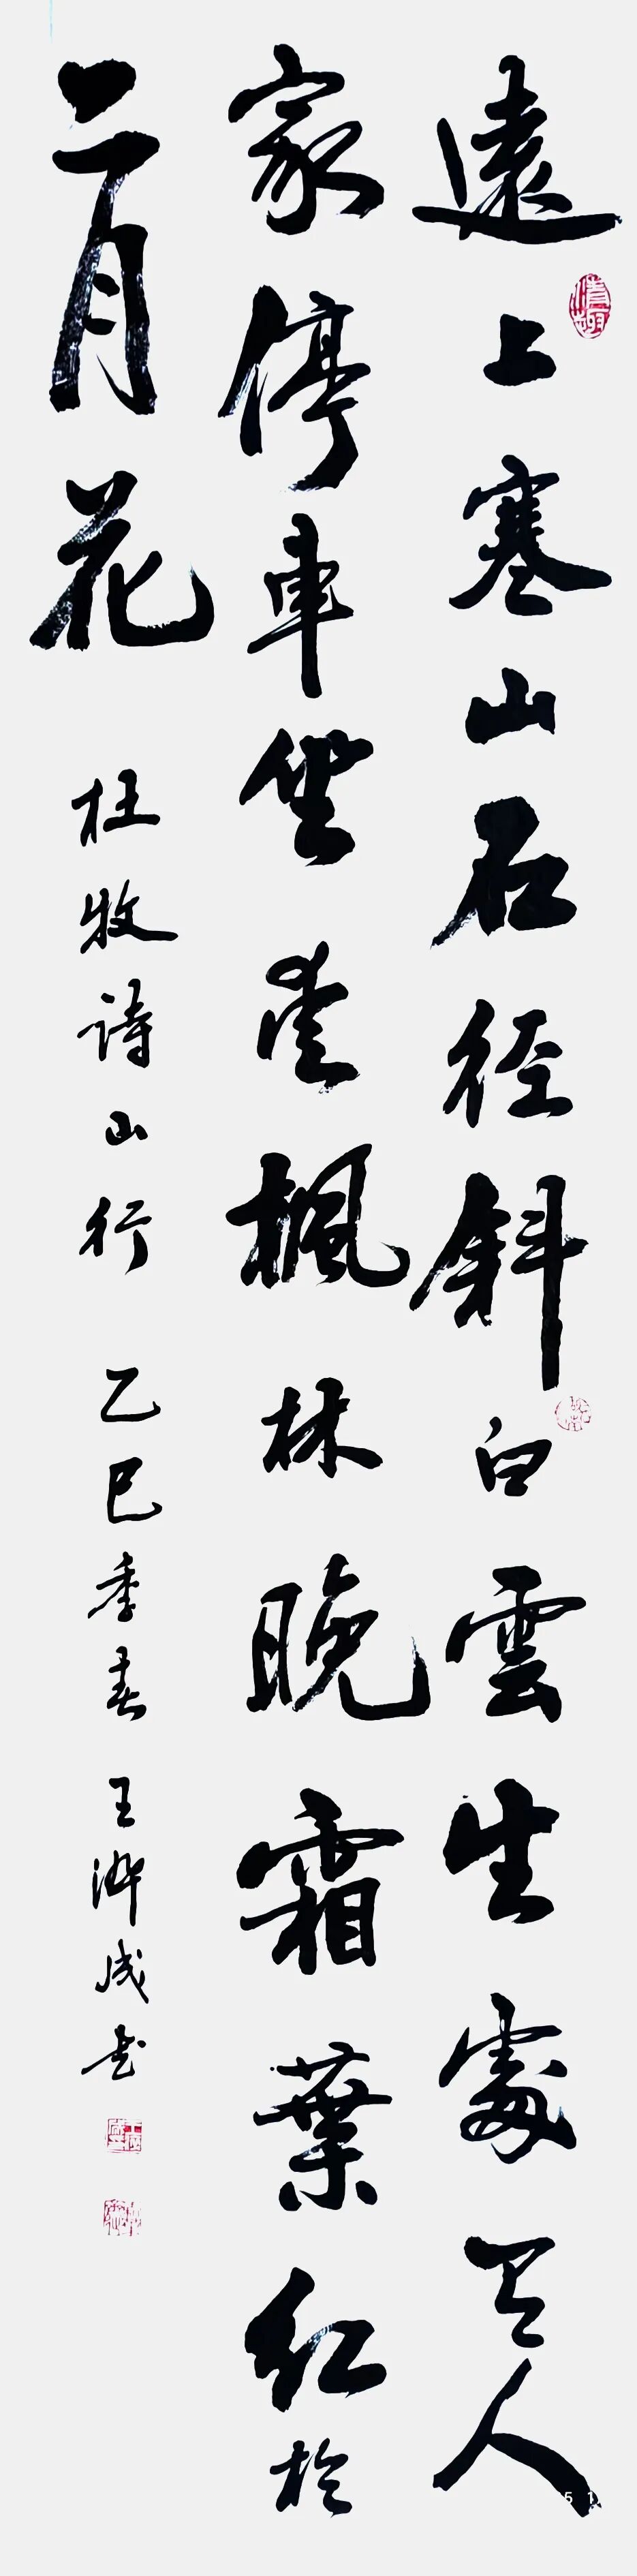 遠上寒山石径斜白雲生處有人
家停車坐愛楓林晚霜葉紅於
二月花 杜牧詩山行 乙巳季春 王成书